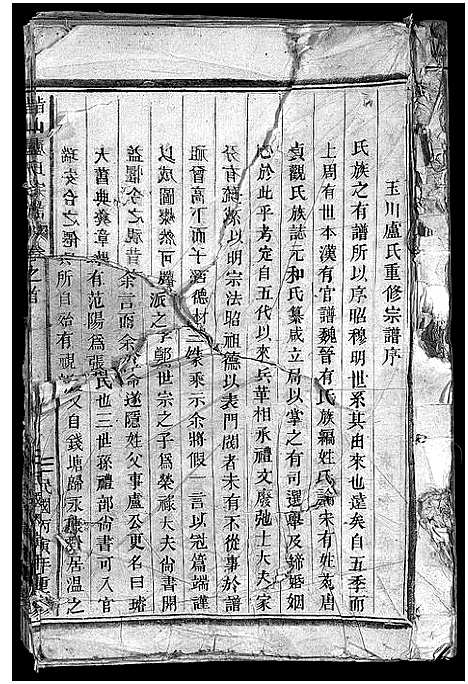 玉川盧氏重修宗譜序
氏族之有譜所以序昭穆明世系其由來也遠矣自五季而
上周有世本漢有官譜魏晉有氏族編姓氏論宋有姓苑唐
貞觀氏族誌元和氏纂咸立局以掌之有司選舉及締婚姻
必於此乎考定自五代以來兵革相承禮文廢弛士大夫家
亦有能以明宗法昭祖德以表門閥者未有不從事於譜
祖晉高下而十酒德材三桀乘示余將假一言以冠篇端謹
以成圖燦然可派之子鄭世宗之子為榮祿大夫尚書開
益堰令之視昔余言而余令遂隱姓父事盧公更名曰璿
大舊典袋章有范陽為張氏也三世孫禮部尚書可入官
瑞安合之便宗所自始有視又自錢塘歸永居溫之
山盧氏宗譜卷之首
民國丙寅年重